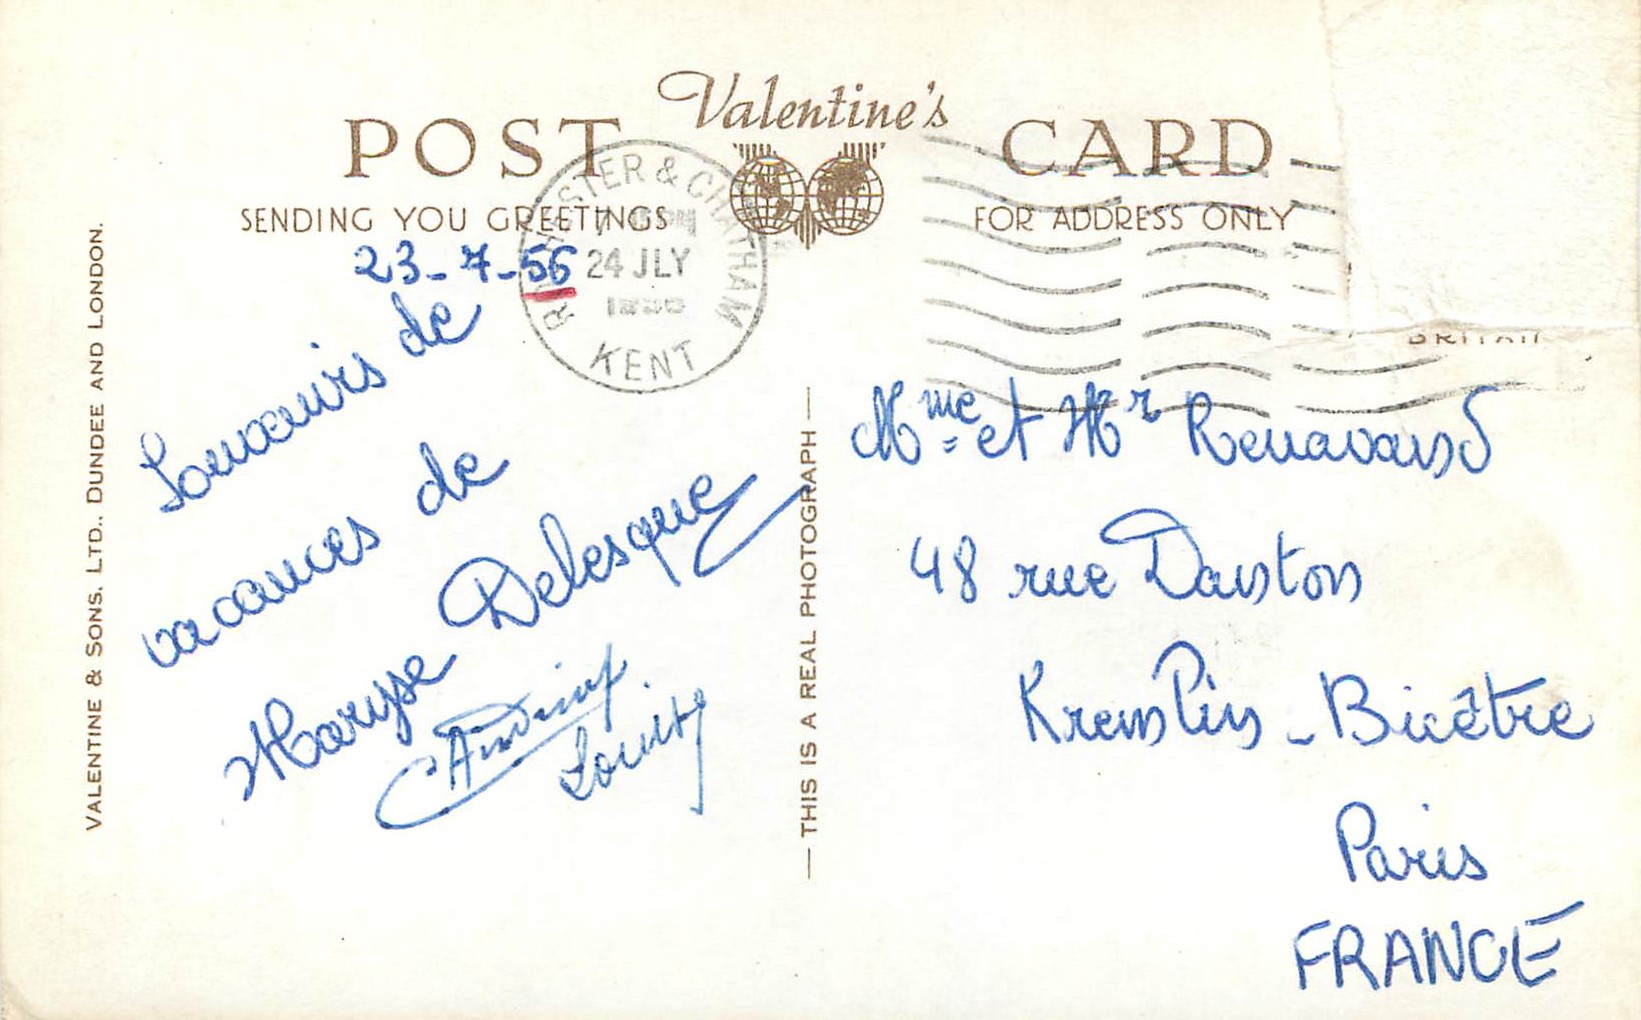 POST Valentine's CARD
SENDING YOU GREETINGS
FOR ADDRESS ONLY
ROCHESTER & CHATHAM
24 JLY
KENT
BRITAIN
23-7-56
Souvenirs de
vacances de
Maryse Delesque
Mme et Mr
48 rue Danton
Kremlin-Bicêtre
Paris
FRANCE
VALENTINE & SONS. LTD., DUNDEE AND LONDON.
— THIS IS A REAL PHOTOGRAPH —